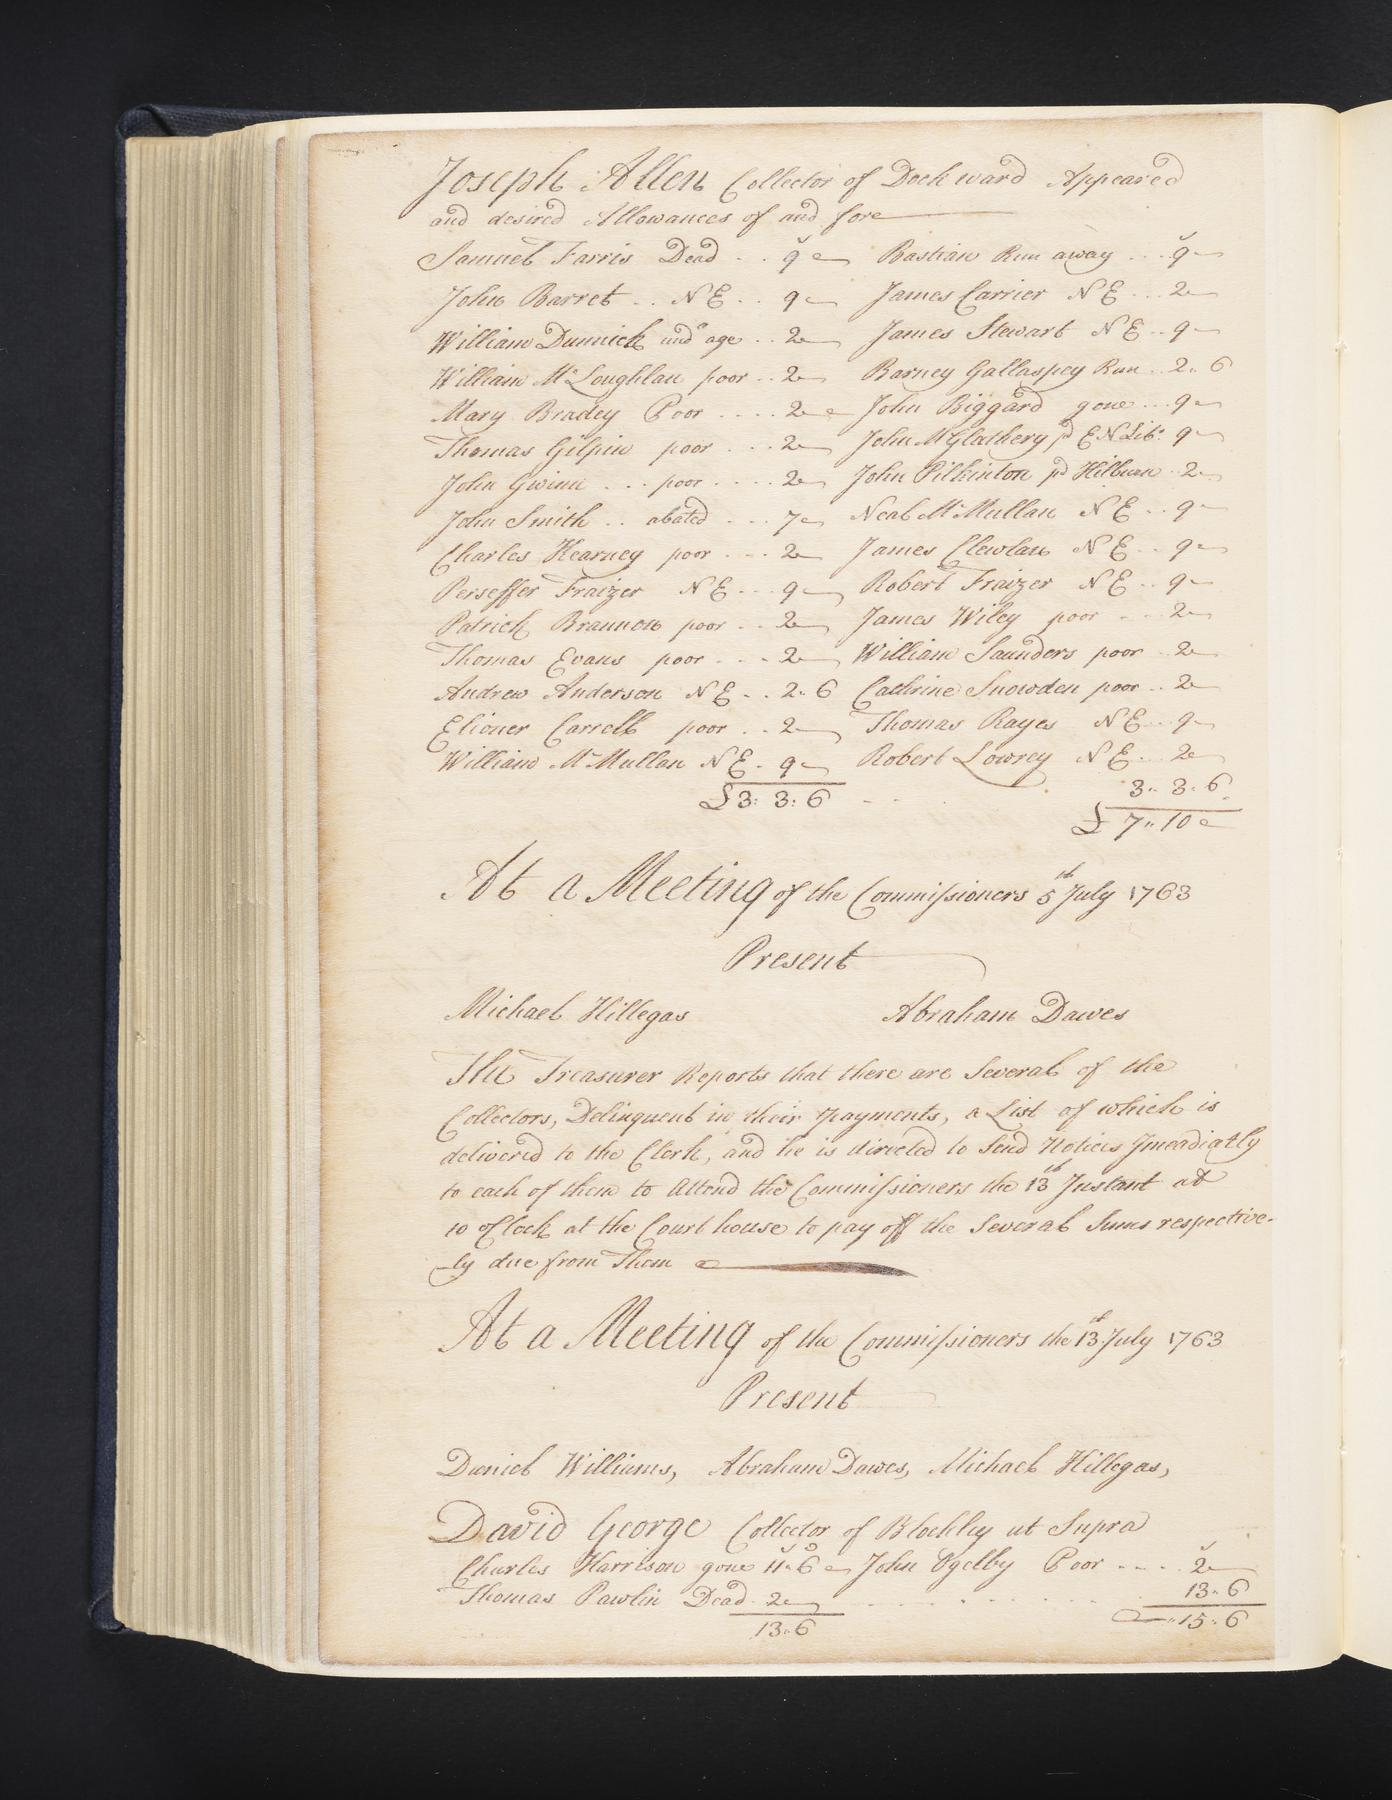 Joseph Allen Collector of Dock ward Appeared
and desired Allowances of and fore
Samuel Farris Dead .. 9 Bastian Run away ... 9
John Barret .. N E .. 9 James Carrier N E ... 2
William Dunnick und.r age .. 2 James Stewart N E .. 9
William Mc Loughlan poor .. 2 Barney Gallaspey Run .. 2. 6
Mary Bradey Poor .... 2 John Biggard gone ... 9
Thomas Gilpin poor ... 2 John McGlathery pd E N Lib.s 9
John Gwinn ... poor .... 2 John Pilkinton pd Hilburn .. 2
John Smith .. abated ... 7 Neal Mc Mullan N E .. 9
Charles Kearney poor ... 2 James Clewlan N E .. 9
Perseffer Fraizer N E ... 9 Robert Fraizer N E .. 9
Patrick Brannon poor ... 2 James Wiley poor ... 2
Thomas Evans poor ... 2 William Saunders poor .. 2
Andrew Anderson N E .. 2. 6 Cathrine Snowden poor .. 2
Elioner Carrell poor .. 2 Thomas Rayes N E ... 9
William Mc Mullan N E . 9 Robert Lowrey N E ... 2
£3: 3: 6 .... 3. 3. 6
£ 7. 10
At a Meeting of the Commissioners 5th July 1763
Present
Michael Hillegas Abraham Dawes
The Treasurer Reports that there are Several of the
Collectors, Delinquent in their payments, a List of which is
delivered to the Clerk, and he is directed to Send Notices Imeadiatly
to each of them to Attend the Commissioners the 13th Instant at
10 oClock at the Court house to pay off the Several Sums respective-
ly due from Them
At a Meeting of the Commissioners the 13th July 1763
Present
Daniel Williams, Abraham Dawes, Michael Hillegas,
David George Collector of Blockley ut Supra
Charles Harrison gone 11. 6 John Ogelby Poor .... 2
Thomas Pawlin Dead . 2 ......... 13. 6
13. 6 15. 6